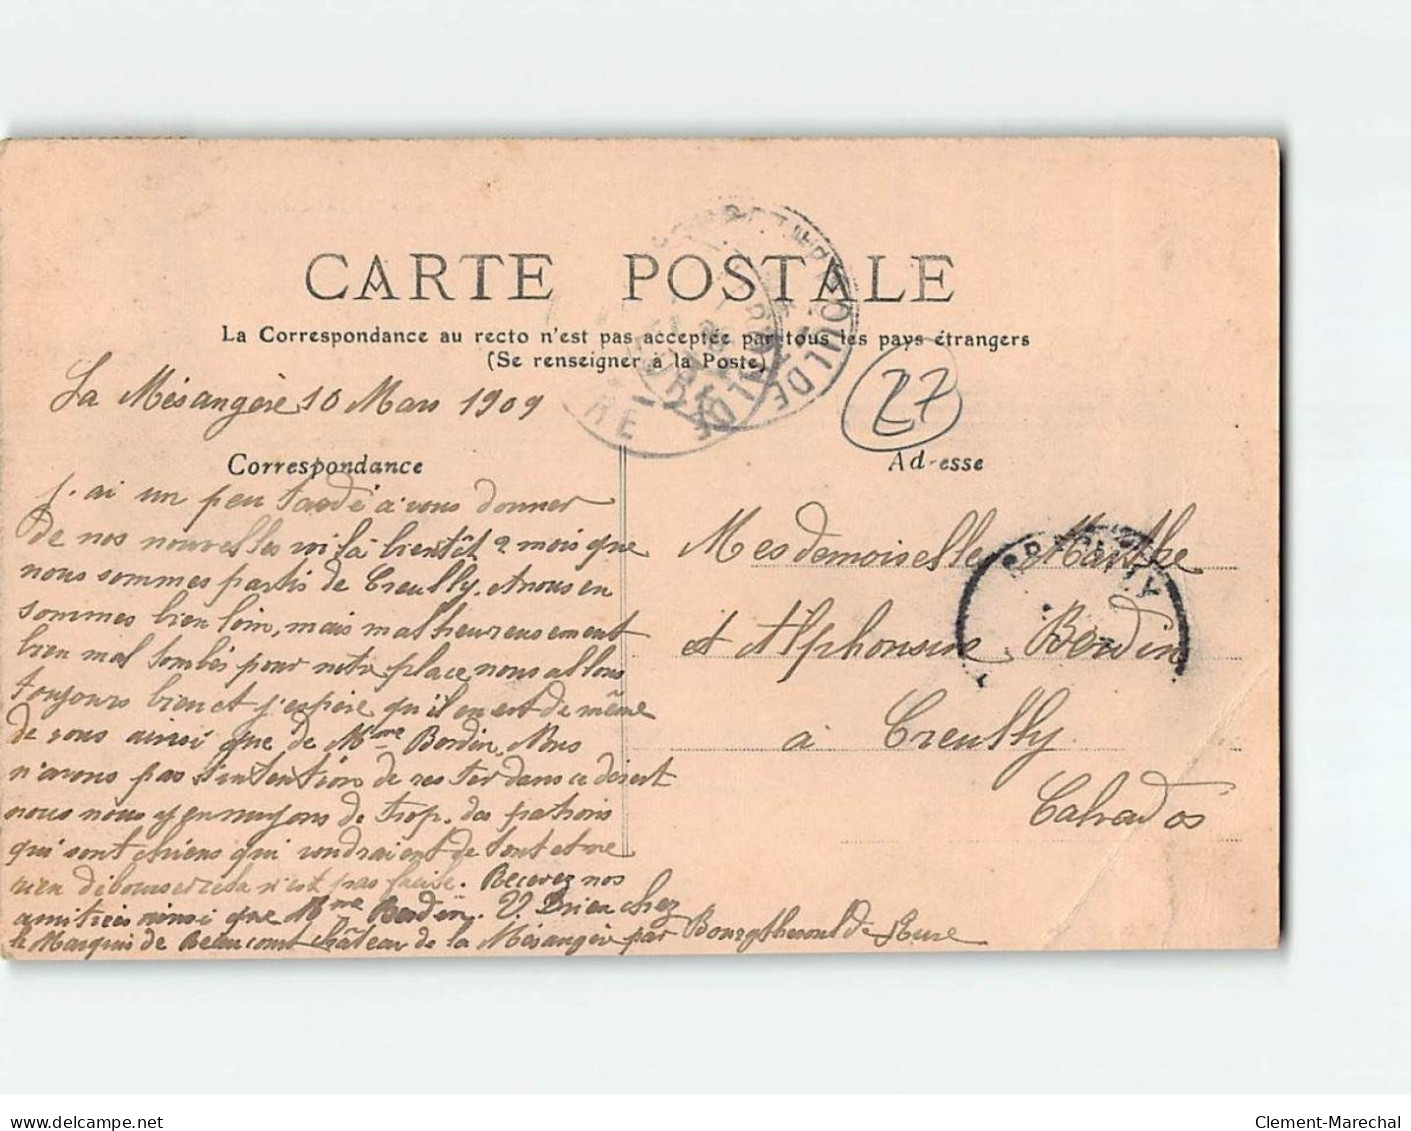 CARTE POSTALE
La Correspondance au recto n'est pas acceptée par tous les pays étrangers
(Se renseigner à la Poste)
La Mésangère 10 Mars 1909
27
Correspondance
Adresse
j'ai un peu tardé a vous donner
de nos nouvelles voilà bientôt 2 mois que
nous sommes partis de Creully. et nous en
sommes bien loin, mais malheureusement
bien mal tombés pour notre place nous allons
toujours bien et j'espère qu'il en est de même
de vous ainsi que de Mme Bordin. Nous
n'avons pas l'intention de rester dans ce désert
nous nous y ennuyons de trop. des patrons
qui sont chiens qui voudraient de tout et ne
rien débourser cela n'est pas facile. Recevez nos
amitiés ainsi que Mme Bordin. V. Brien chez
le Marquis de Beaucourt château de la Mésangère par Bourgtheroulde Eure
Mesdemoiselles Marthe
et Alphonsine Bordin
à Creully
Calvados
BOURGTHEROULDE
EURE
CREULLY
Clement-Marechal